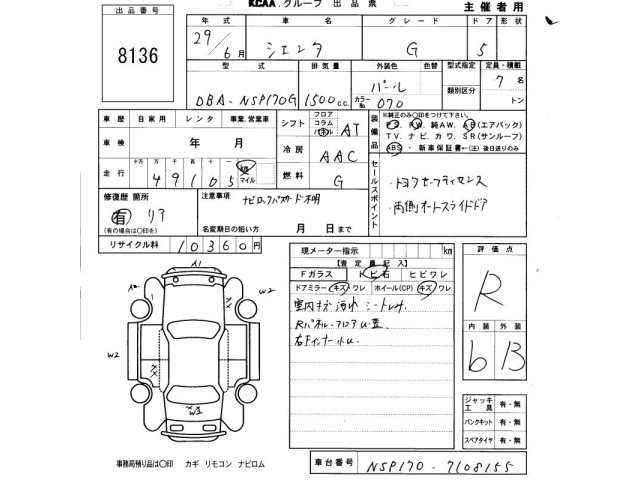 KCAA. グループ 出品票
主催者用
出品番号
8136
年式 車名 グレード ドア 形状
29/6月 シエンタ G 5
型式 排気量 外装色 色替 型式指定 定員・積載
DBA-NSP170G 1500c.c. パール 類別区分 7名
カラーNo. 070 トン
車歴 自家用 レンタ 事業.営業車
シフト フロア コラム パネル AT
車検 年 月
冷房 AAC
走行 十万 万 千 百 十 一 km マイル
49105
燃料 G
装備品
※純正のみ〇印をつけて下さい。
PS、PW、純AW、AB(エアバック)
TV、ナビ、カワ、SR(サンルーフ)
ABS・新車保証書←(注)後日送りのみ
セールスポイント
・トヨタセーフティセンス
・両側オートスライドドア
修復歴 箇所
有 リア
(有の場合は〇印を)
注意事項
ナビロックパスワード不明
名変期日の短い方 月 日まで
リサイクル料 10360円
現メーター指示 km
【査定員記入】
Fガラス トビ石 ヒビワレ
ドアミラー キズ ワレ ホイール(CP) キズ ワレ
室内キズ 汚れ シート
評価点
R
内装 外装
b B
A1
A2
W2
W2
W3
ジャッキ 工具 有・無
パンクキット 有・無
スペアタイヤ 有・無
事務局預り品は〇印 カギ リモコン ナビロム
車台番号 NSP170-7108155